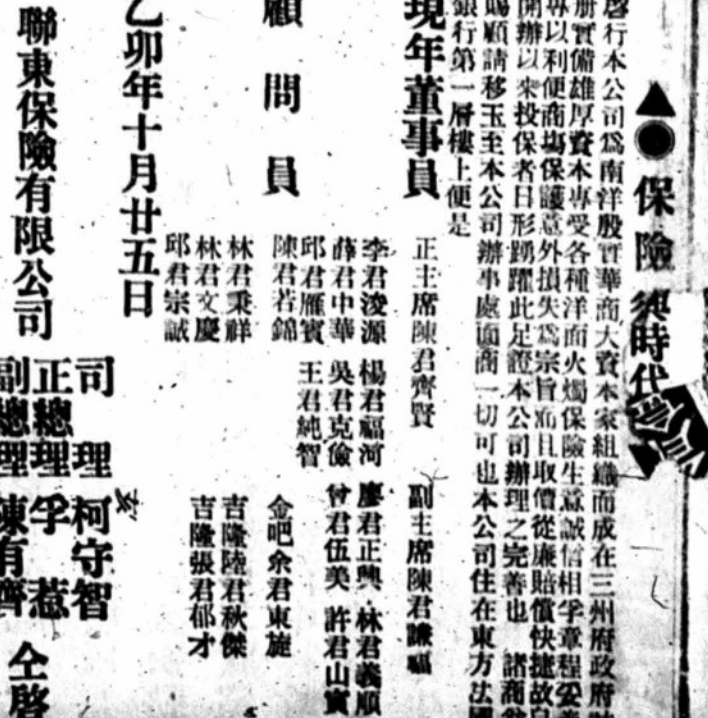 保險與時代
啓行本公司爲南洋殷實華商大資本家組織而成在三州府政府
册實備雄厚資本專受各種洋面火燭保險生意誠信相孚章程
專以利便商塲保護意外損失爲宗旨而且取價從廉賠償快捷故自
開辦以來投保者日形踴躍此足證本公司辦理之完善也 諸商翁
賜顧請移玉至本公司辦事處面商一切可也本公司住在東方法國
銀行第一層樓上便是
現年董事員
正主席陳君齊賢 副主席陳君謙福
李君浚源 楊君福河 廖君正興 林君義順
薛君中華 吳君克儉 曾君伍美 許君山寶
邱君雁賓 王君純智
顧問員
陳君若錦 金吧余君東旋
林君秉祥 吉隆陸君秋傑
林君文慶 吉隆張君郁才
邱君宗誠
乙卯年十月廿五日
司理 柯守智
正總理 李惹
副總理 陳有齊
聯東保險有限公司 仝啓